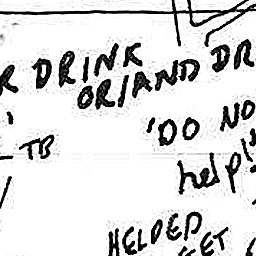 R DRINK
OR/AND DR
'DO NO
TB
help!
HELDED
GET